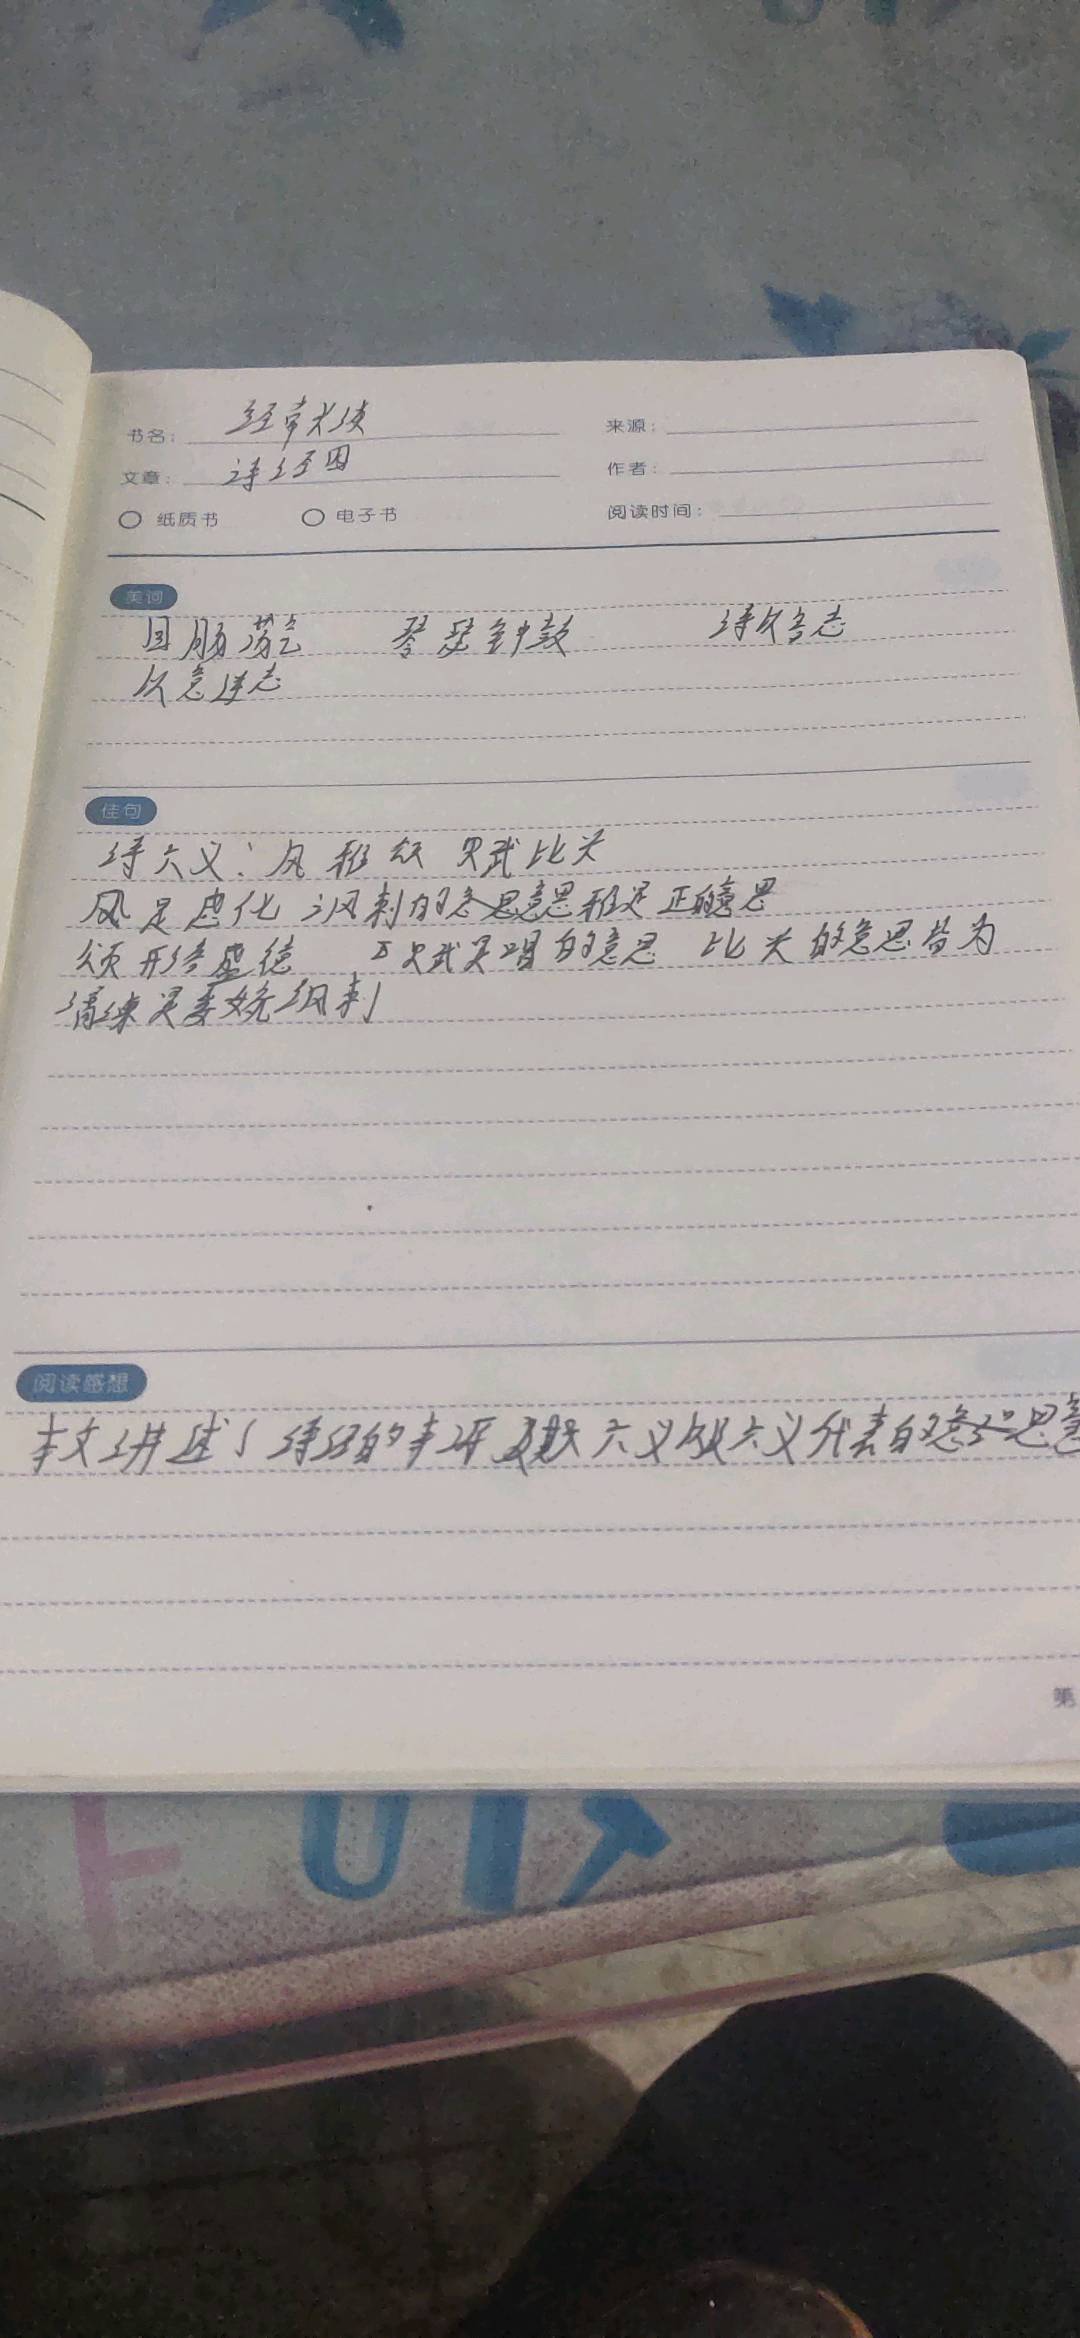 书名： 经常谈
来源：
文章： 诗经
作者：
纸质书 电子书
阅读时间：
美词
回肠荡气 琴瑟钟鼓 诗以言志
以意逆志
佳句
诗六义：风雅颂 赋比兴
风是 化 讽刺的意思 雅是正的意思
颂 形容盛德 赋 唱的意思 比兴的意思皆为
讽刺
阅读感想
本文讲述了诗经的 六义 六义代表的意思
第